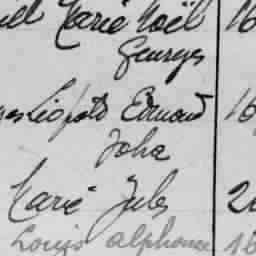 Marie Noël 16
Georges
Léopold Edmond 16
John
Marie Jules 2
Louis alphonse 16